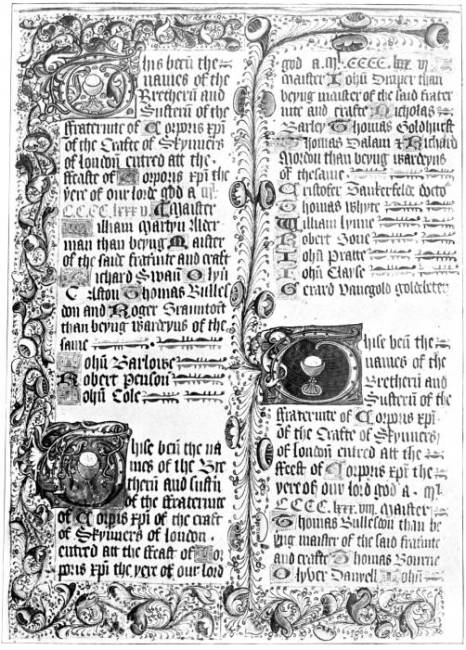 This benı the
names of the
Bretherıı and
Susterıı of the
ffraternite of Corporis xp̄i
of the Crafte of Skynners
of london entred att the
ffeast of Corporis xp̄i the
yere of our lorde god a mˡ
CCCC lxxx v. Maister
William Martyn Alder
man than beyng Maister
of the said fratnite and craft
Richard Swan Olyū
Caston Thomas Bulles
don and Roger Grauntoft
than beyng wardeyns of the
same
John Barlowe
Robert Penson
John Cole
Thise benı the na
mes of the Bre
therıı and sustıı
of the ffraternite
of Corpus xp̄i of the craft
of Skynners of london
entred att the ffeast of Cor
poris xp̄i the yere of our lord
god a. mˡ. CCCC. lxxx vj
Maister John Draper than
beyng maister of the said frater
nite and crafte Nicholas
Barley Thomas Goldhurst
Thomas Dalam & Richard
Mordon than beyng wardeyns
of the same
Cristofer
Thomas Whyte
William Lynne
Robert Boue
John Pratte
John Clayse
Gerard Vanegold goldbeter
Thise benı the
names of the
Bretherıı and
Susterıı of the
ffraternite of Corporis xp̄i
of the Crafte of Skynners
of london entred att the
ffeest of Corporis xp̄i the
yere of our lord god a. mˡ
CCCC. lxxx. vij. Maister
Thomas Bulleston than be
yng maister of the said fratnite
and crafte Thomas Bourne
Olyber Danyell John